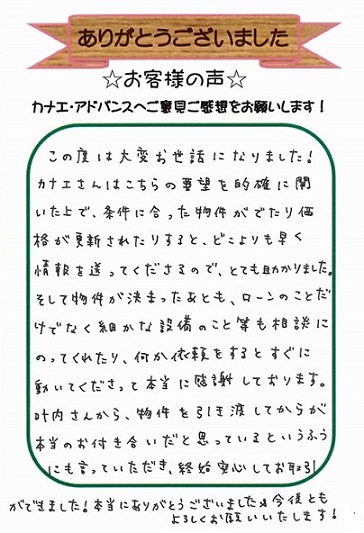 ありがとうございました
☆お客様の声☆
カナエ・アドバンスへご意見ご感想をお願いします！
この度は大変お世話になりました！
カナエさんはこちらの要望を的確に聞
いた上で、条件に合った物件がでたり価
格が更新されたりすると、どこよりも早く
情報を送ってくださるので、とても助かりました。
そして物件が決まったあとも、ローンのことだ
けでなく細かな設備のこと等も相談に
のってくれたり、何か依頼をするとすぐに
動いてくださって本当に感謝しております。
叶内さんから、物件を引き渡してからが
本当のお付き合いだと思っているというふう
にも言っていただき、終始安心してお取引
ができました！本当にありがとうございました。今後とも
よろしくお願いいたします！